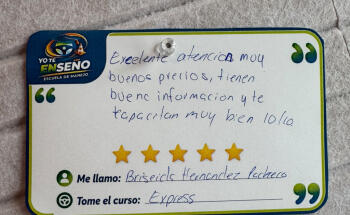 YO TE
ENSEÑO
ESCUELA DE MANEJO
Excelente atención muy
buenos precios, tienen
buena informacion y te
capacitan muy bien 10/10
Me llamo: Briseida Hernandez Pacheco
Tome el curso: Express